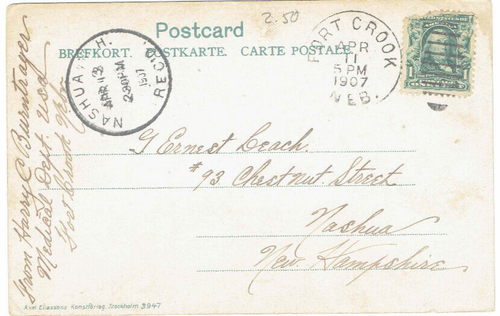 Postcard
2.50
BREFKORT. POSTKARTE. CARTE POSTALE.
FORT CROOK
APR
11
5 PM
1907
NEB.
NASHUA, N.H.
APR 13
230PM
1907
REC'D.
1
G Ernest Beach.
#93 Chestnut Street
Nashua
New Hampshire.
From Harry C
Medical Dept. USA
Fort Crook Neb
Axel Eliassons Konstförlag, Stockholm 3947